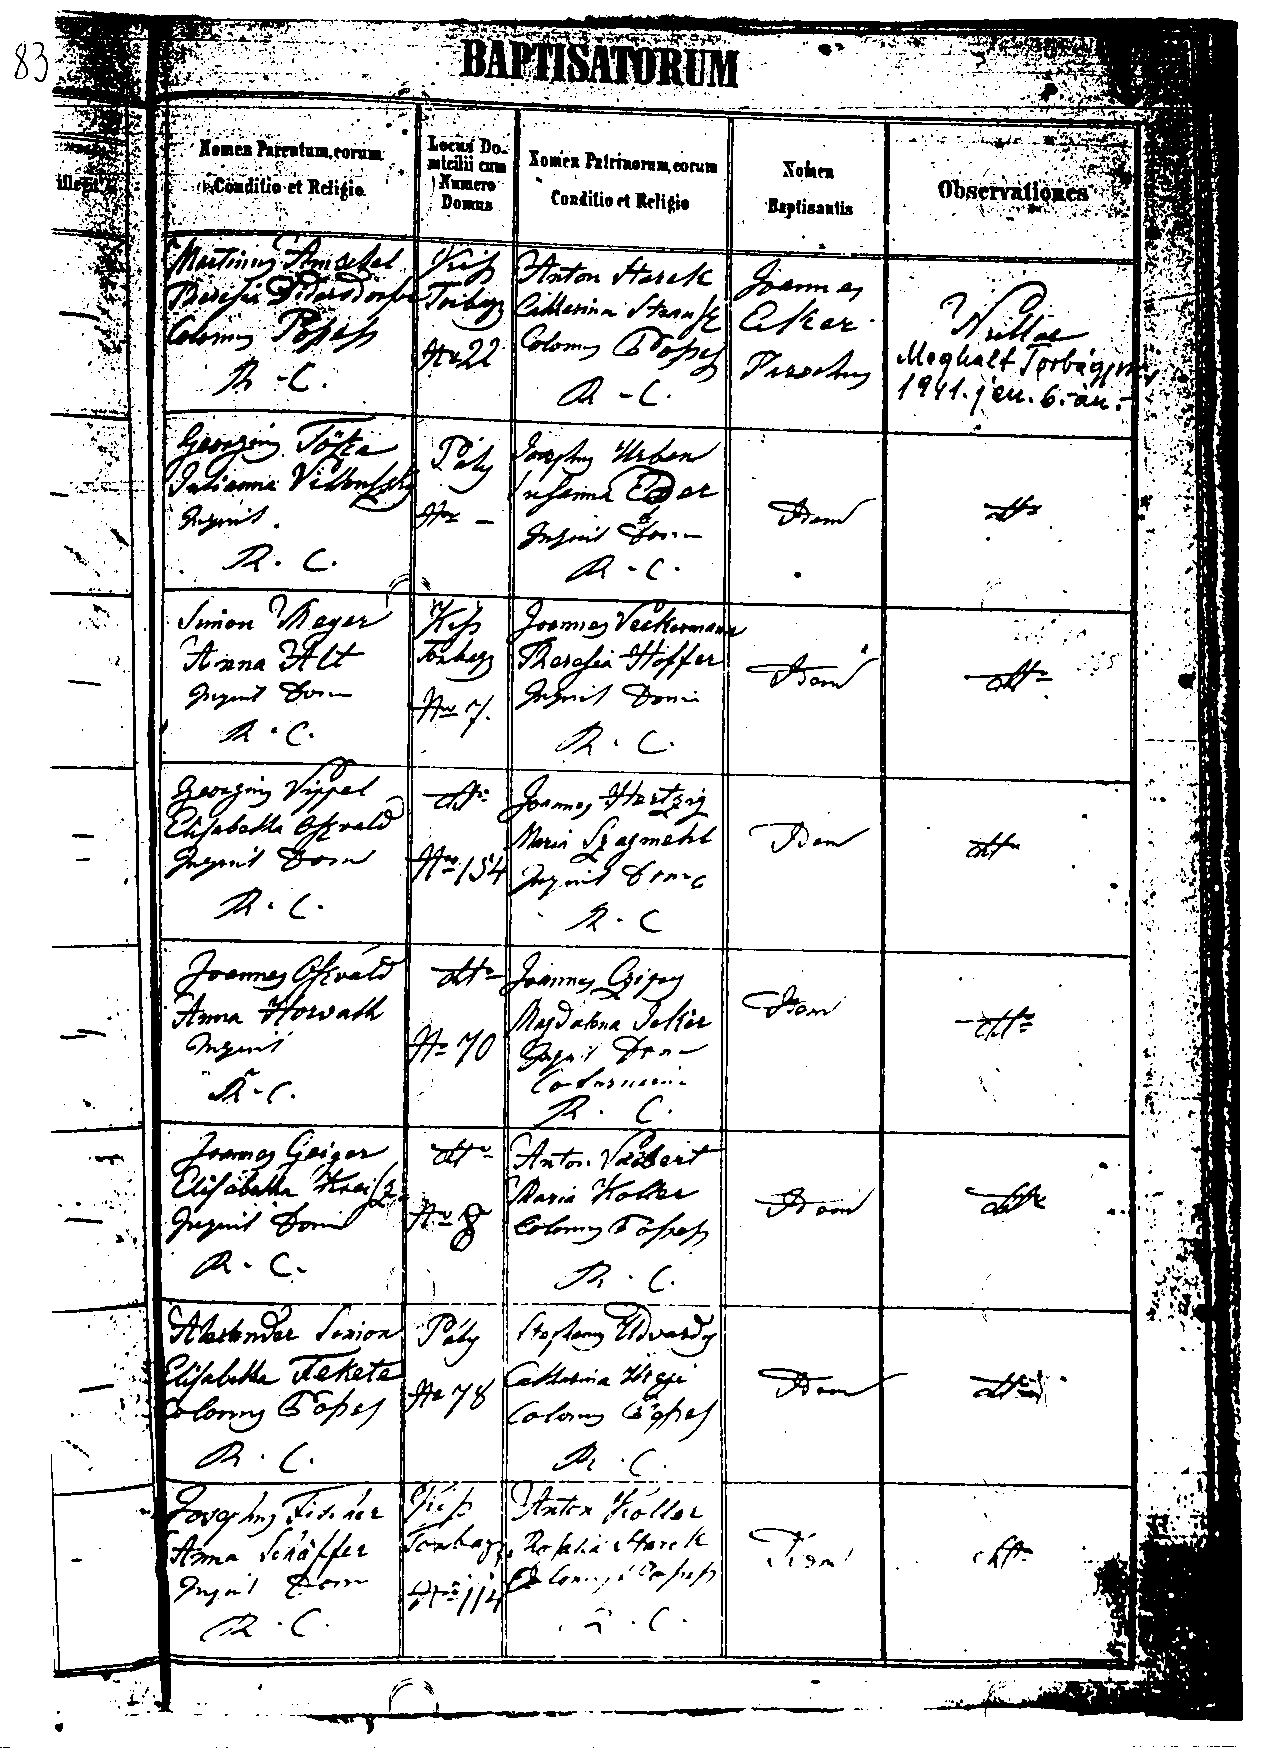 83
BAPTISATORUM
Nomen Parentum, eorum
Conditio et Religio.
Locus Do-
micilii cum
Numero
Domus
Nomen Patrinorum, eorum
Conditio et Religio
Nomen
Baptisantis
Observationes
Martinus Amschel
Theresia
Colonus
R - C.
Kiss
Torbagy
Nro 22
Anton Starck
Catharina
Colonus
R - C.
Joannes
Eker
Parochus
Nullae
Meghalt Torbágyon
1941. jan. 6.-án.-
Georgius
Julianna
Inquil.
R. C.
Páty
Nro -
Josephus Urban
Susanna Eder
Inquil Dom
R - C.
Idem
dtto
Simon Mayer
Anna Alt
Inquil Dom
R. C.
Kiss
Torbagy
Nro 7.
Joannes Veckermann
Theresia Hoffer
Inquil Domi
R. C.
Idem
dtto
Georgius Vippel
Elisabetha Osvald
Inquil Dom
R. C.
dtto
Nro 154
Joannes Hertzig
Maria
Inquil Dom
R. C
Idem
dtto
Joannes Osvald
Anna Horvath
Inquil
R - C.
dtto
Nro 70
Joannes
Magdalena
Inquil Dom
R. C.
Idem
dtto
Joannes Geiger
Elisabetha
Inquil Domi
R. C.
dtto
Nro 8
Anton
Maria Koller
Colonus
R. C.
Idem
dtto
Alexander Simon
Elisabetha Fekete
Colonus
R. C.
Páty
Nro 78
Stephanus Udvardy
Catharina
Colonus
R. C.
Idem
dtto
Josephus Fischer
Anna Schäffer
Inquil Dom
R. C.
Kiss
Torbagy
Nro 114
Anton Koller
Rosalia Starck
Colonus
R. C.
Idem
dtto